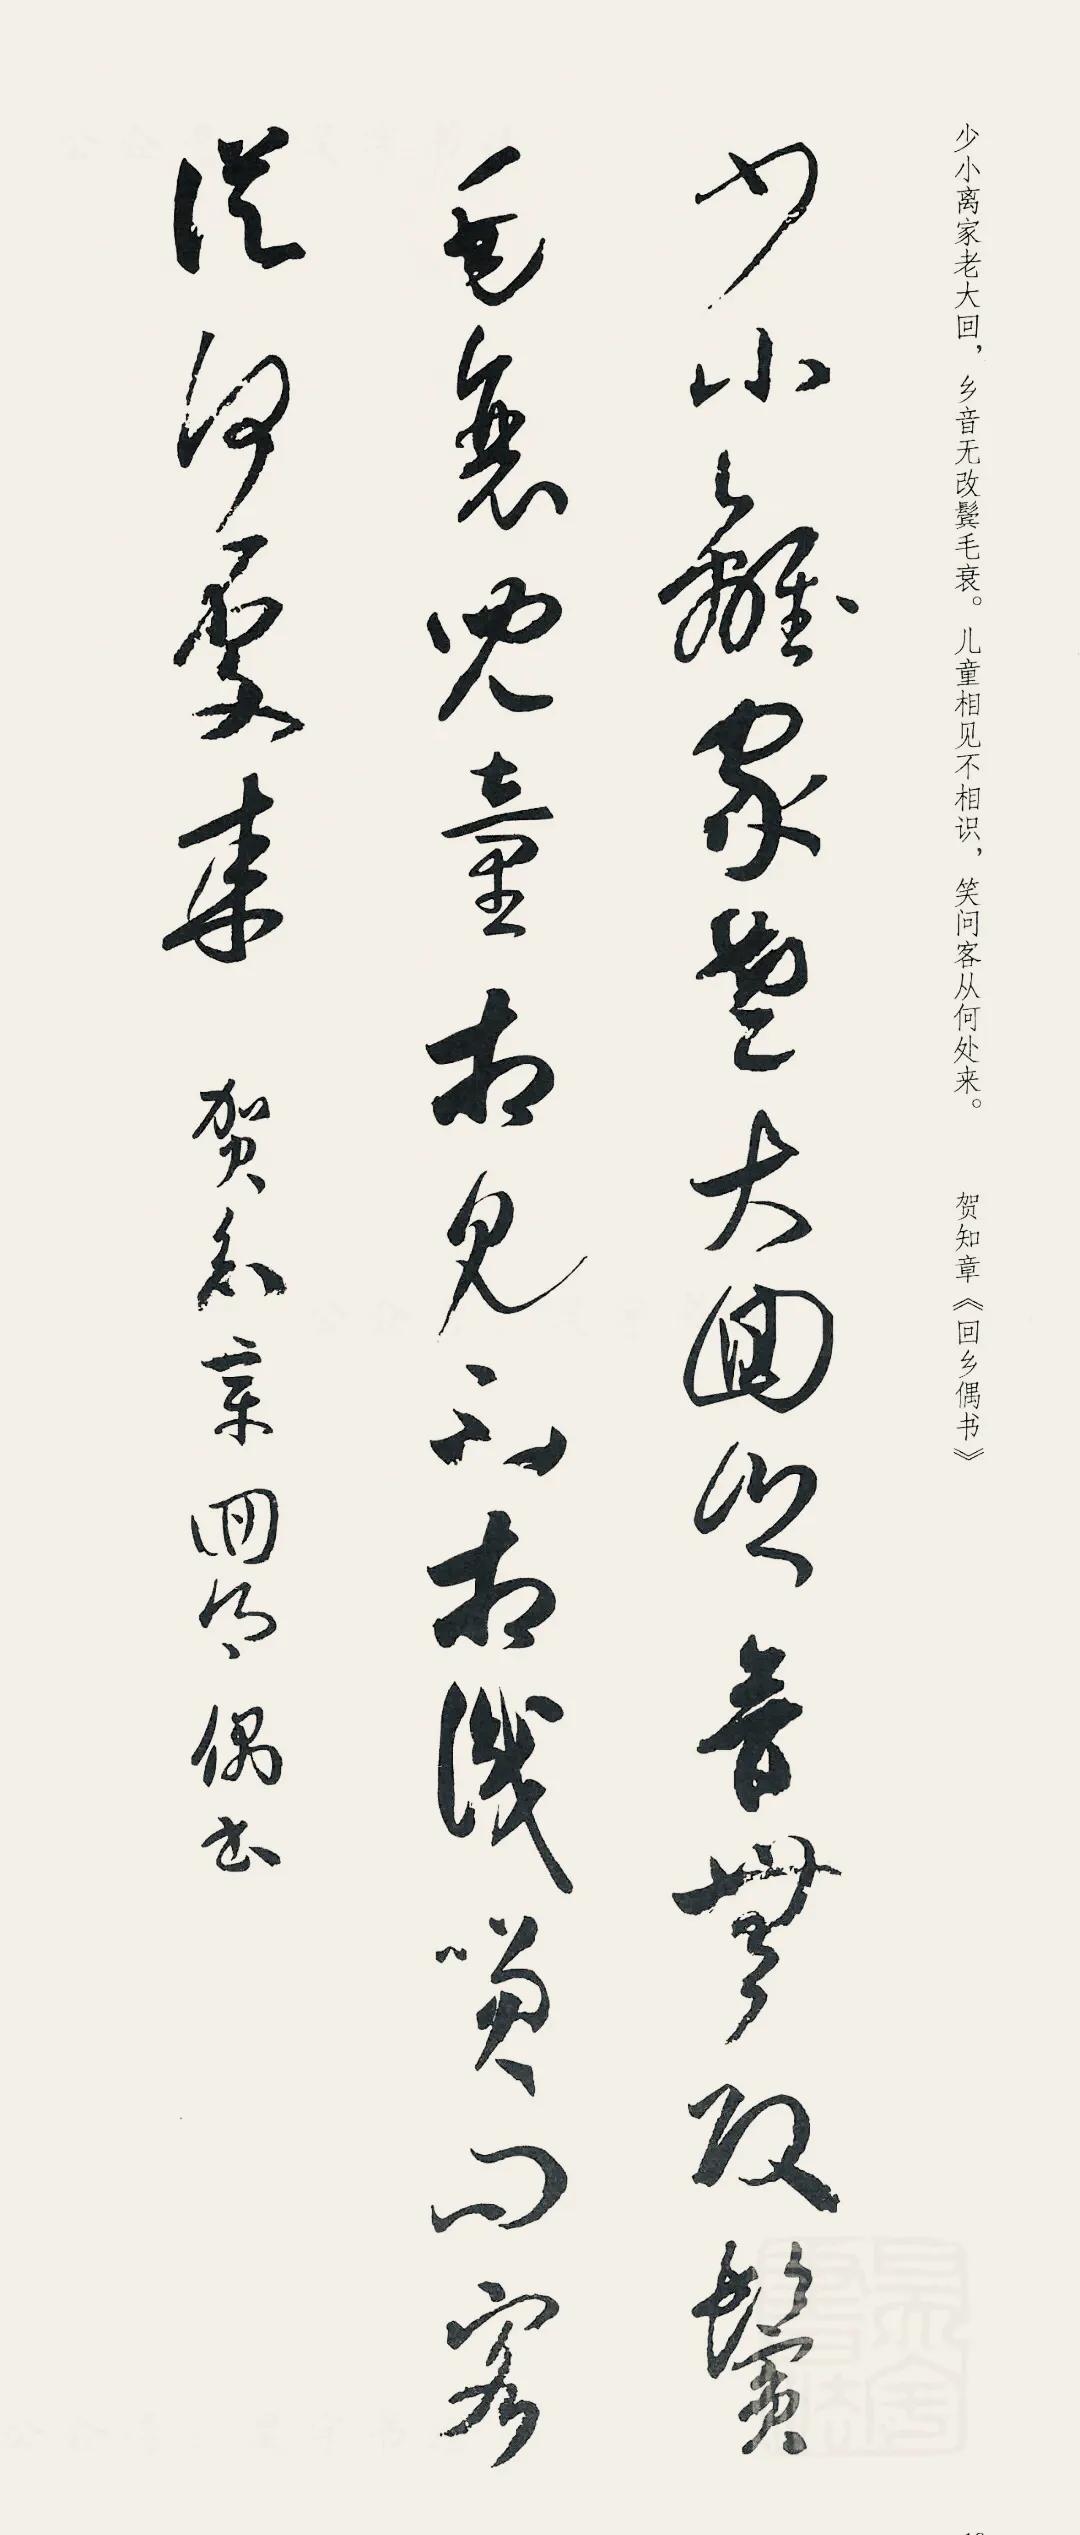 少小离家老大回，乡音无改鬓毛衰。儿童相见不相识，笑问客从何处来。　贺知章《回乡偶书》
少小離家老大回乡音無改鬢
毛衰兒童相見不相識笑问客
從何處来　贺知章回乡偶书